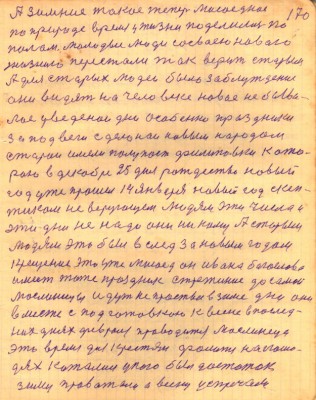 170
А зимние такое тепер мясоедное
по природе время у жизни поделились по
полам. Молодые люди со своего нового
жизного перестали так верит старым
А для старых людей было заблуждение
они видят на человеке новое небыва-
лое уведеной дни особенно праздники
За подвеги сдесной новым народом
старые имели полупост филиповки кото-
рого в декабре 25 дня рождество новый
год уже прошел 14 января новый год скеп-
тиком не верующем людям эти числа и
эти дни не надо они никому А старым
людям это был в след за новым годом
крещение это уже мясоед он ивана богослова
имеет тоже праздник стретение до самой
Маслиницы идут не простые в зиме дни они
вместе с подготовкой к весне в послед-
них днях февраля проводится Маслинеца
это время для крестян
катали у кого был достаток
зиму провожали а весну встречали